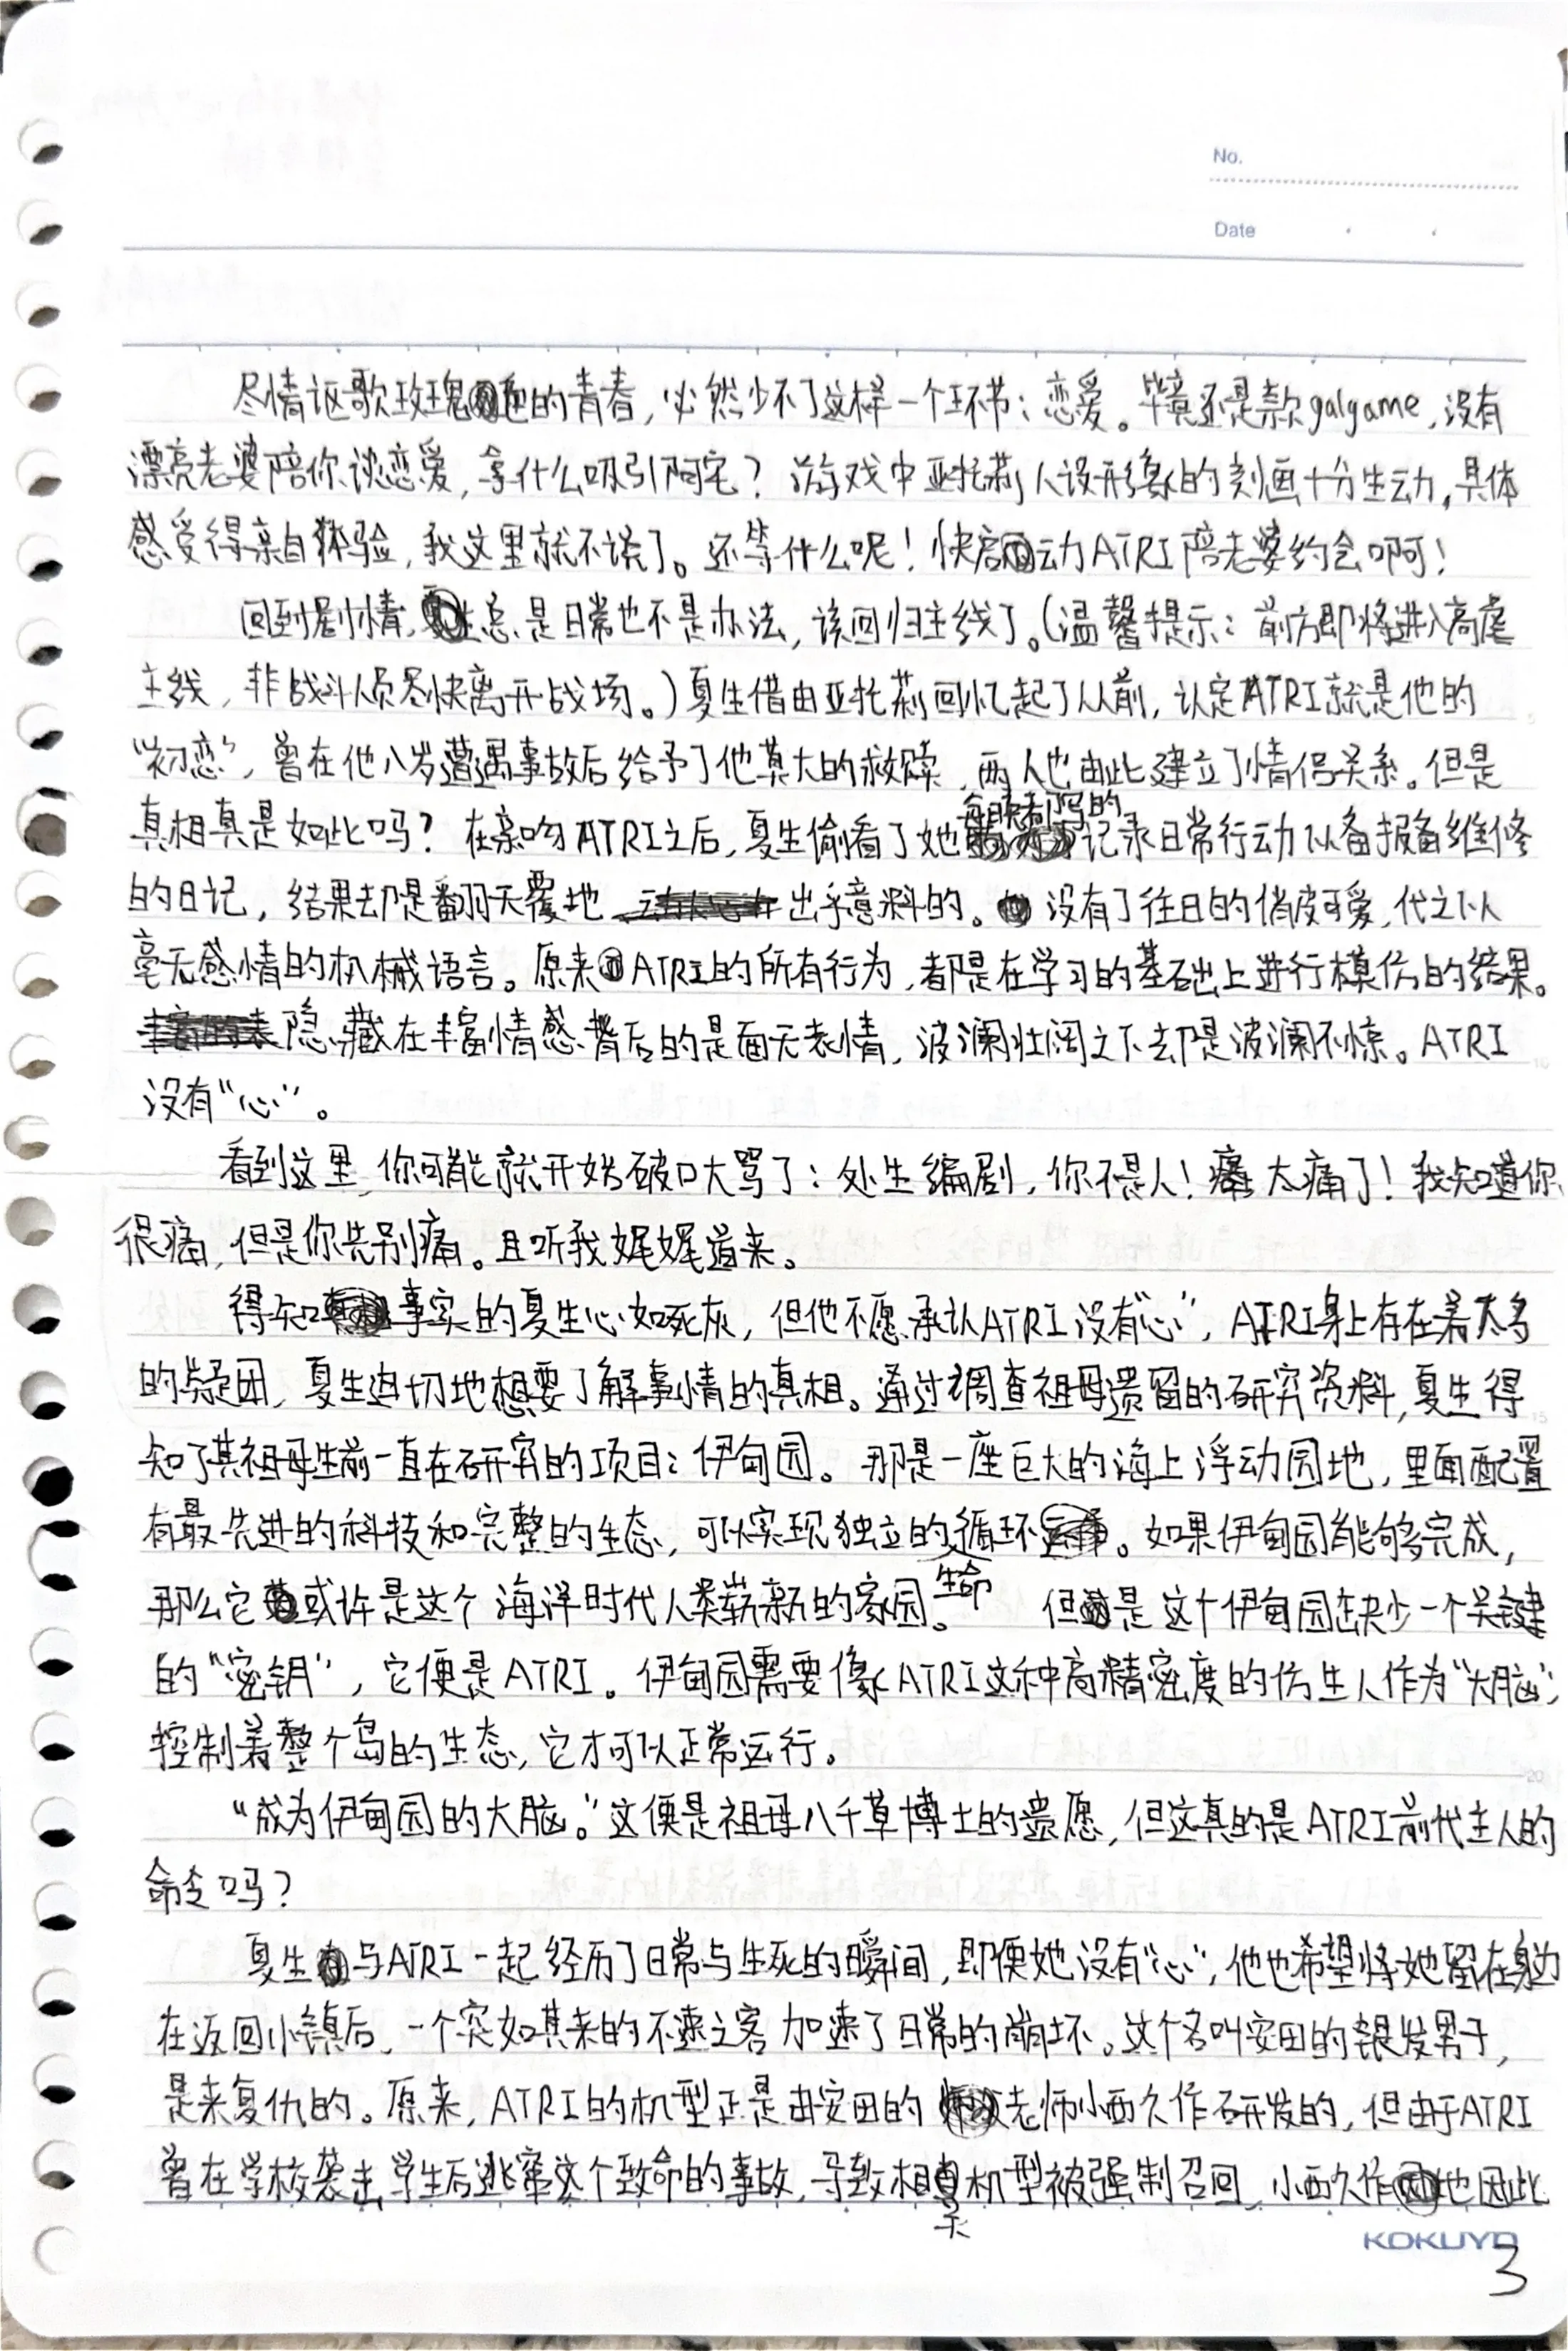 No.
Date
尽情讴歌玫瑰色的青春，必然少不了这样一个环节：恋爱。毕竟还是款galgame，没有
漂亮老婆陪你谈恋爱，拿什么吸引阿宅？游戏中亚托莉人设形象的刻画十分生动，具体
感受得亲自体验，我这里就不谈了。还等什么呢！快启动ATRI陪老婆约会啊！
回到剧情，总是日常也不是办法，该回归主线了。（温馨提示：前方即将进入高虐
主线，非战斗人员尽快离开战场。）夏生借由亚托莉回忆起了从前，认定ATRI就是他的
“初恋”，曾在他八岁遭遇事故后给予了他莫大的救赎，两人也由此建立了情侣关系。但是
真相真是如此吗？在亲吻ATRI之后，夏生偷看了她每晚都写的记录日常行动以备报备维修
的日记，结果却是翻天覆地出乎意料的。没有了往日的俏皮可爱，代之以
毫无感情的机械语言。原来ATRI的所有行为，都是在学习的基础上进行模仿的结果。
隐藏在丰富情感背后的是面无表情，波澜壮阔之下却是波澜不惊。ATRI
没有“心”。
看到这里，你可能就开始破口大骂了：处生编剧，你不是人！痛太痛了！我知道你
很痛，但是你先别痛。且听我娓娓道来。
得知事实的夏生心如死灰，但他不愿承认ATRI没有“心”，ATRI身上存在着太多
的疑团，夏生迫切地想要了解事情的真相。通过调查祖母遗留的研究资料，夏生得
知了其祖母生前一直在研究的项目：伊甸园。那是一座巨大的海上浮动园地，里面配置
有最先进的科技和完整的生态，可以实现独立的生命循环。如果伊甸园能够完成，
那么它或许是这个海洋时代人类崭新的家园。但是这个伊甸园缺少一个关键
的“密钥”，它便是ATRI。伊甸园需要像ATRI这种高精密度的仿生人作为“大脑”，
控制着整个岛的生态，它才可以正常运行。
“成为伊甸园的大脑。”这便是祖母八千草博士的遗愿，但这真的是ATRI前代主人的
命令吗？
夏生与ATRI一起经历了日常与生死的瞬间，即便她没有“心”，他也希望将她留在身边
在返回小镇后，一个突如其来的不速之客加速了日常的崩坏。这个名叫安田的银发男子，
是来复仇的。原来，ATRI的机型正是由安田的老师小西久作研发的，但由于ATRI
曾在学校袭击学生后逃窜这个致命的事故，导致相关机型被强制召回，小西久作也因此
KOKUYO
3